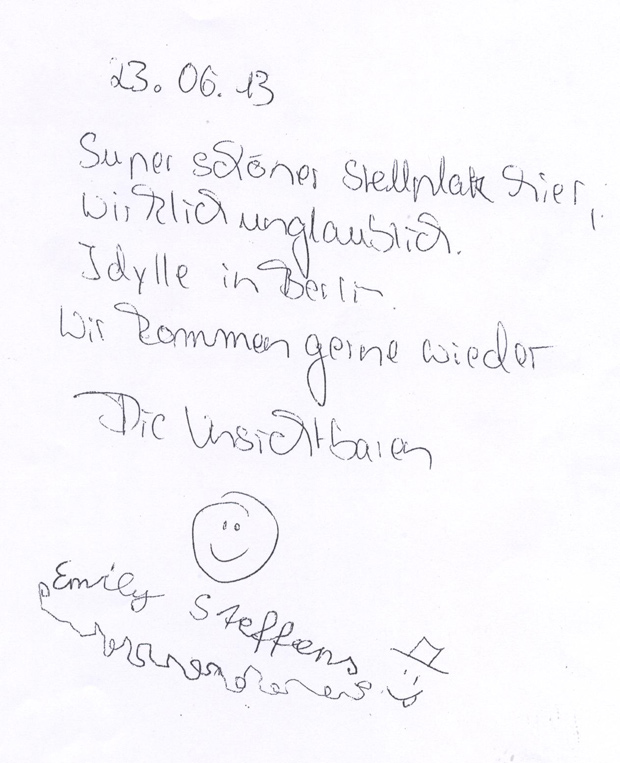 23.06.13
Super schöner Stellplatz hier,
wirklich unglaublich.
Idylle in Berlin.
Wir kommen gerne wieder
Die Unsichtbaren
Emily Steffens